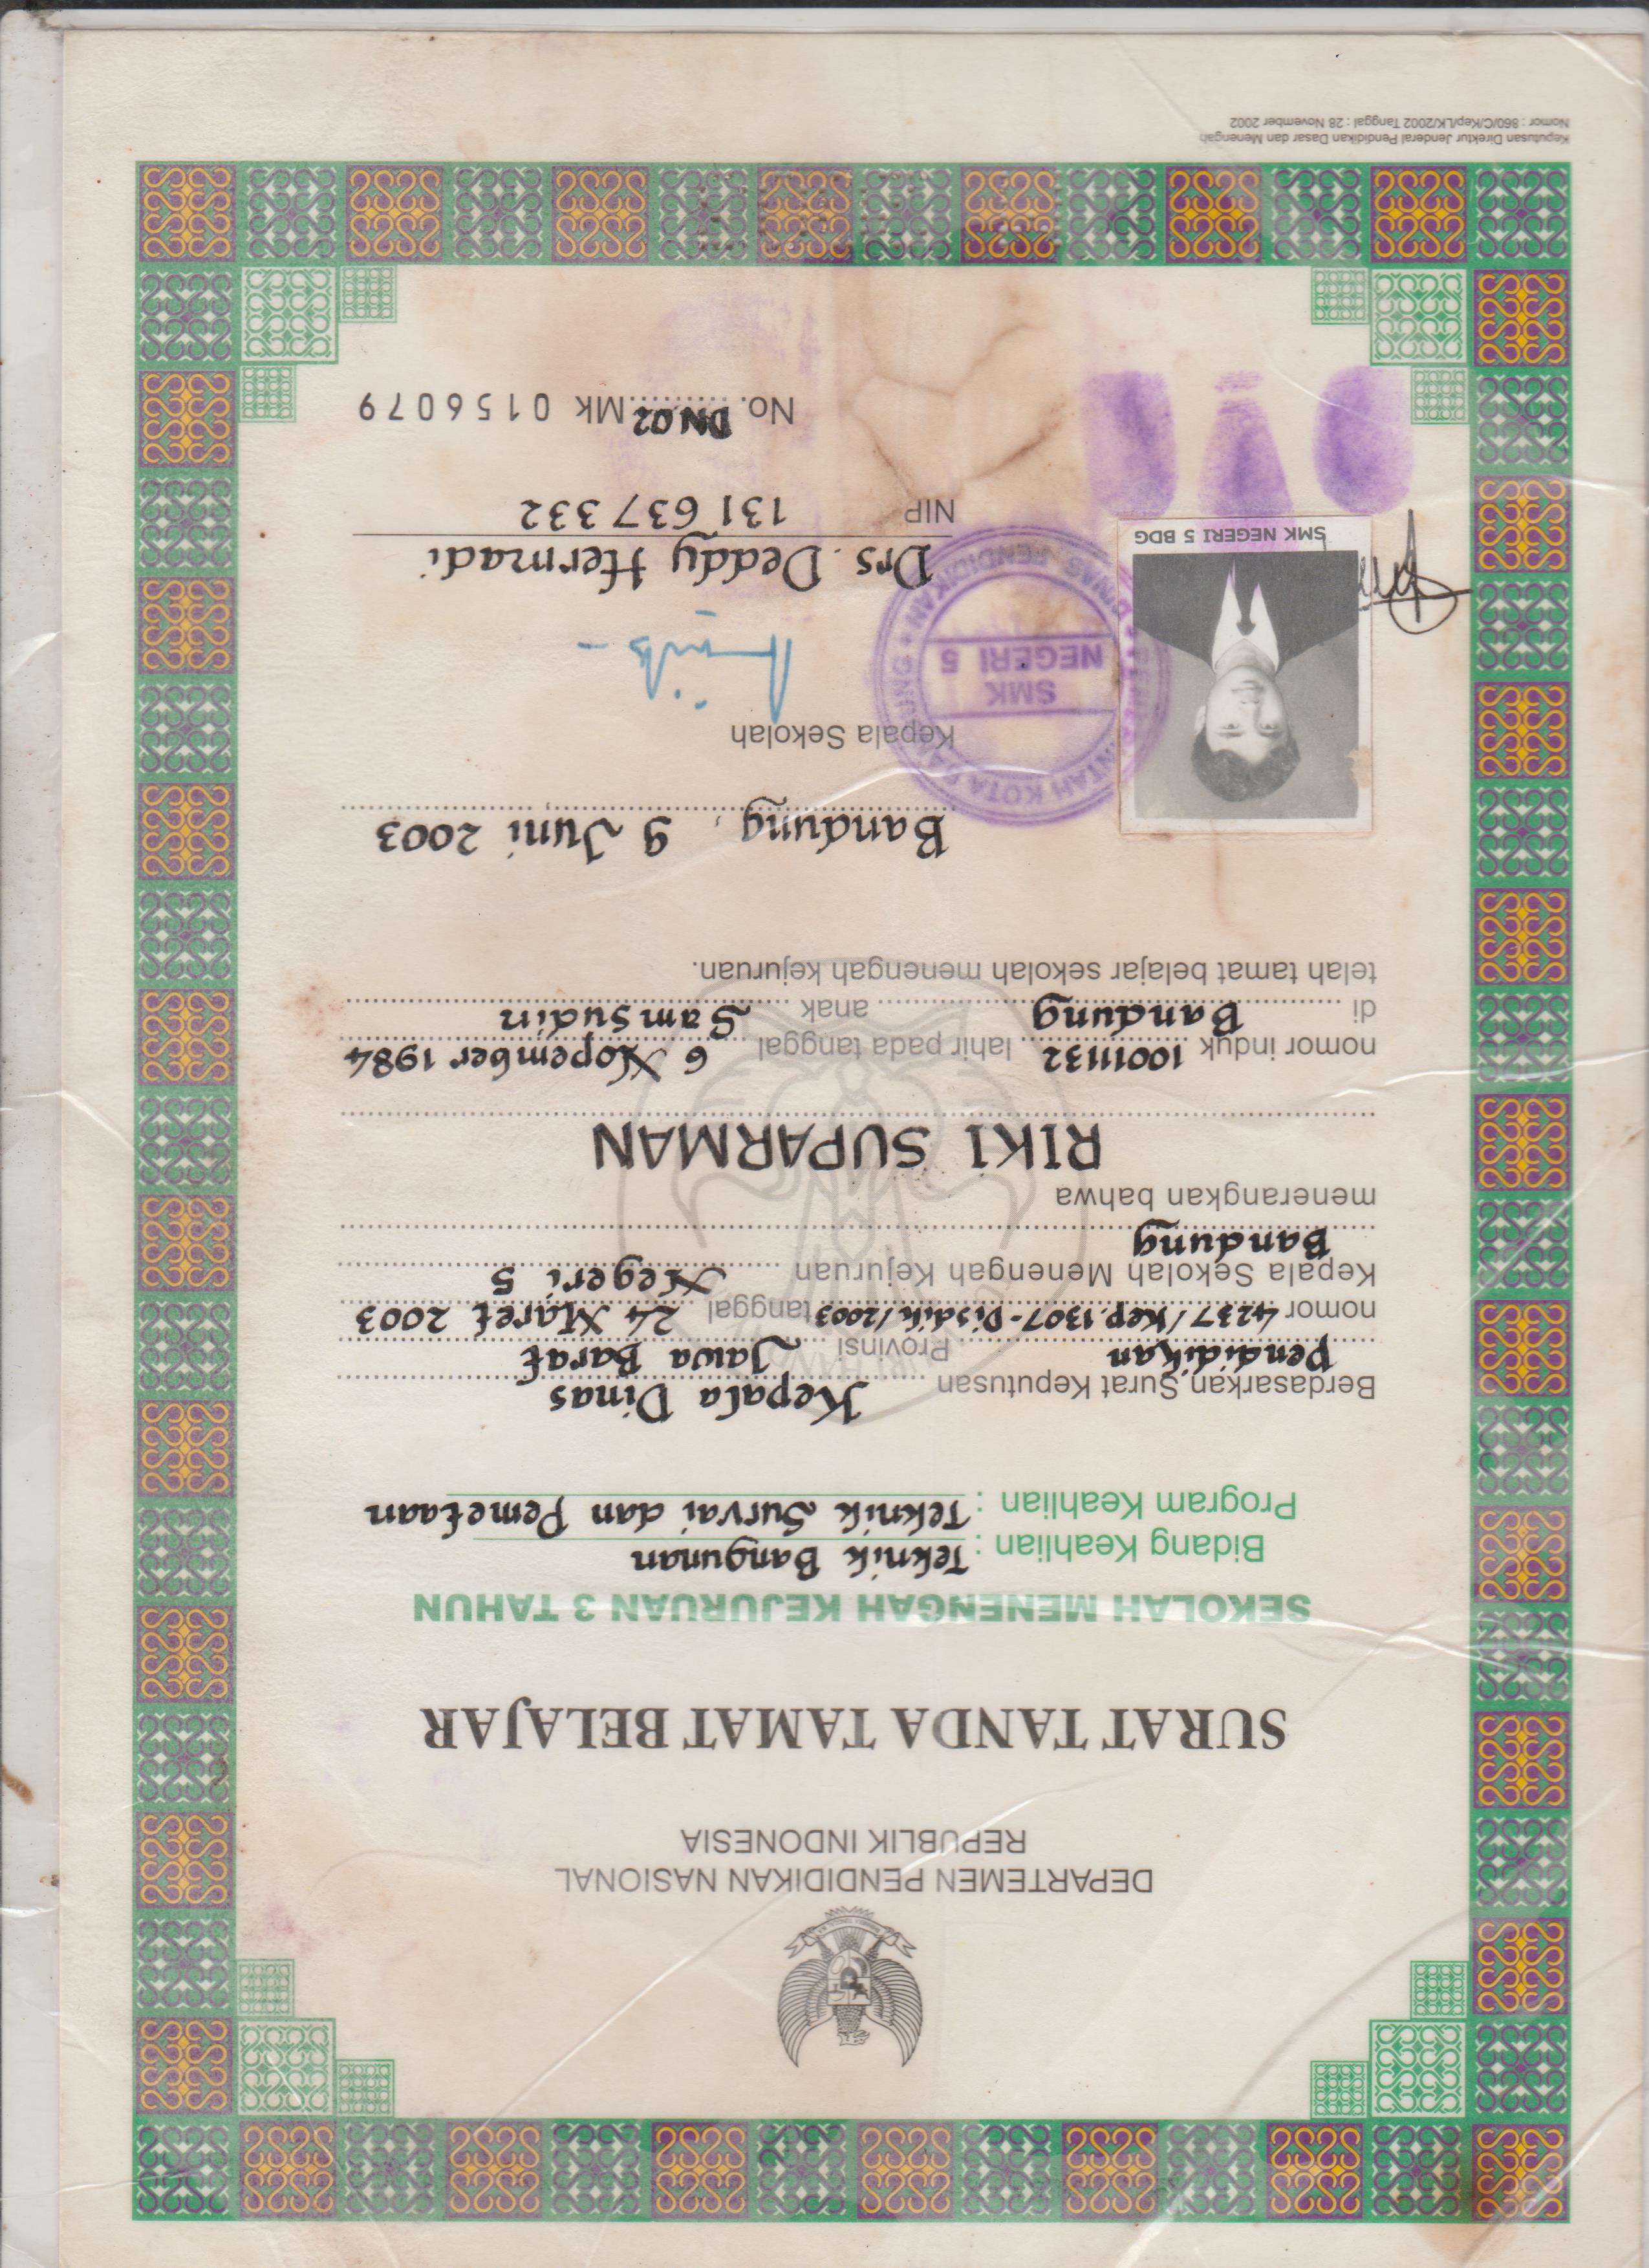 DEPARTEMEN PENDIDIKAN NASIONAL
REPUBLIK INDONESIA
SURAT TANDA TAMAT BELAJAR
SEKOLAH MENENGAH KEJURUAN 3 TAHUN
Bidang Keahlian : Teknik Bangunan
Program Keahlian : Teknik Survai dan Pemetaan
Berdasarkan Surat Keputusan Kepala Dinas
Pendidikan Provinsi Jawa Barat
nomor 4237/Kep.1307-Disdik/2003 tanggal 24 Maret 2003
Kepala Sekolah Menengah Kejuruan Negeri 5
Bandung
menerangkan bahwa
RIKI SUPARMAN
nomor induk 10011132 lahir pada tanggal 6 Nopember 1984
di Bandung anak Samsudin
telah tamat belajar sekolah menengah kejuruan.
Bandung, 9 Juni 2003
Kepala Sekolah
SMK
NEGERI 5
DINAS PENDIDIKAN
Drs. Deddy Hermadi
SMK NEGERI 5 BDG
NIP 131 637 332
No. DN.02 Mk 0156079
Keputusan Direktur Jenderal Pendidikan Dasar dan Menengah
Nomor : 860/C/Kep/LK/2002 Tanggal : 28 November 2002